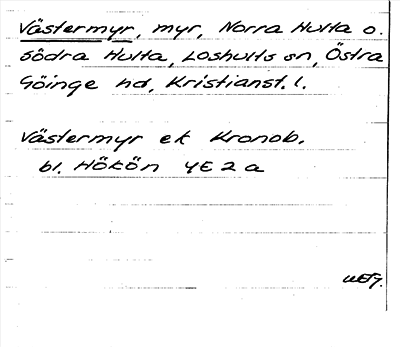 Västermyr, myr, Norra Hulta o.
Södra Hulta, Loshults sn, Östra
Göinge hd, Kristianst. l.
Västermyr ek Kronob.
bl. Hökön 4E 2 a